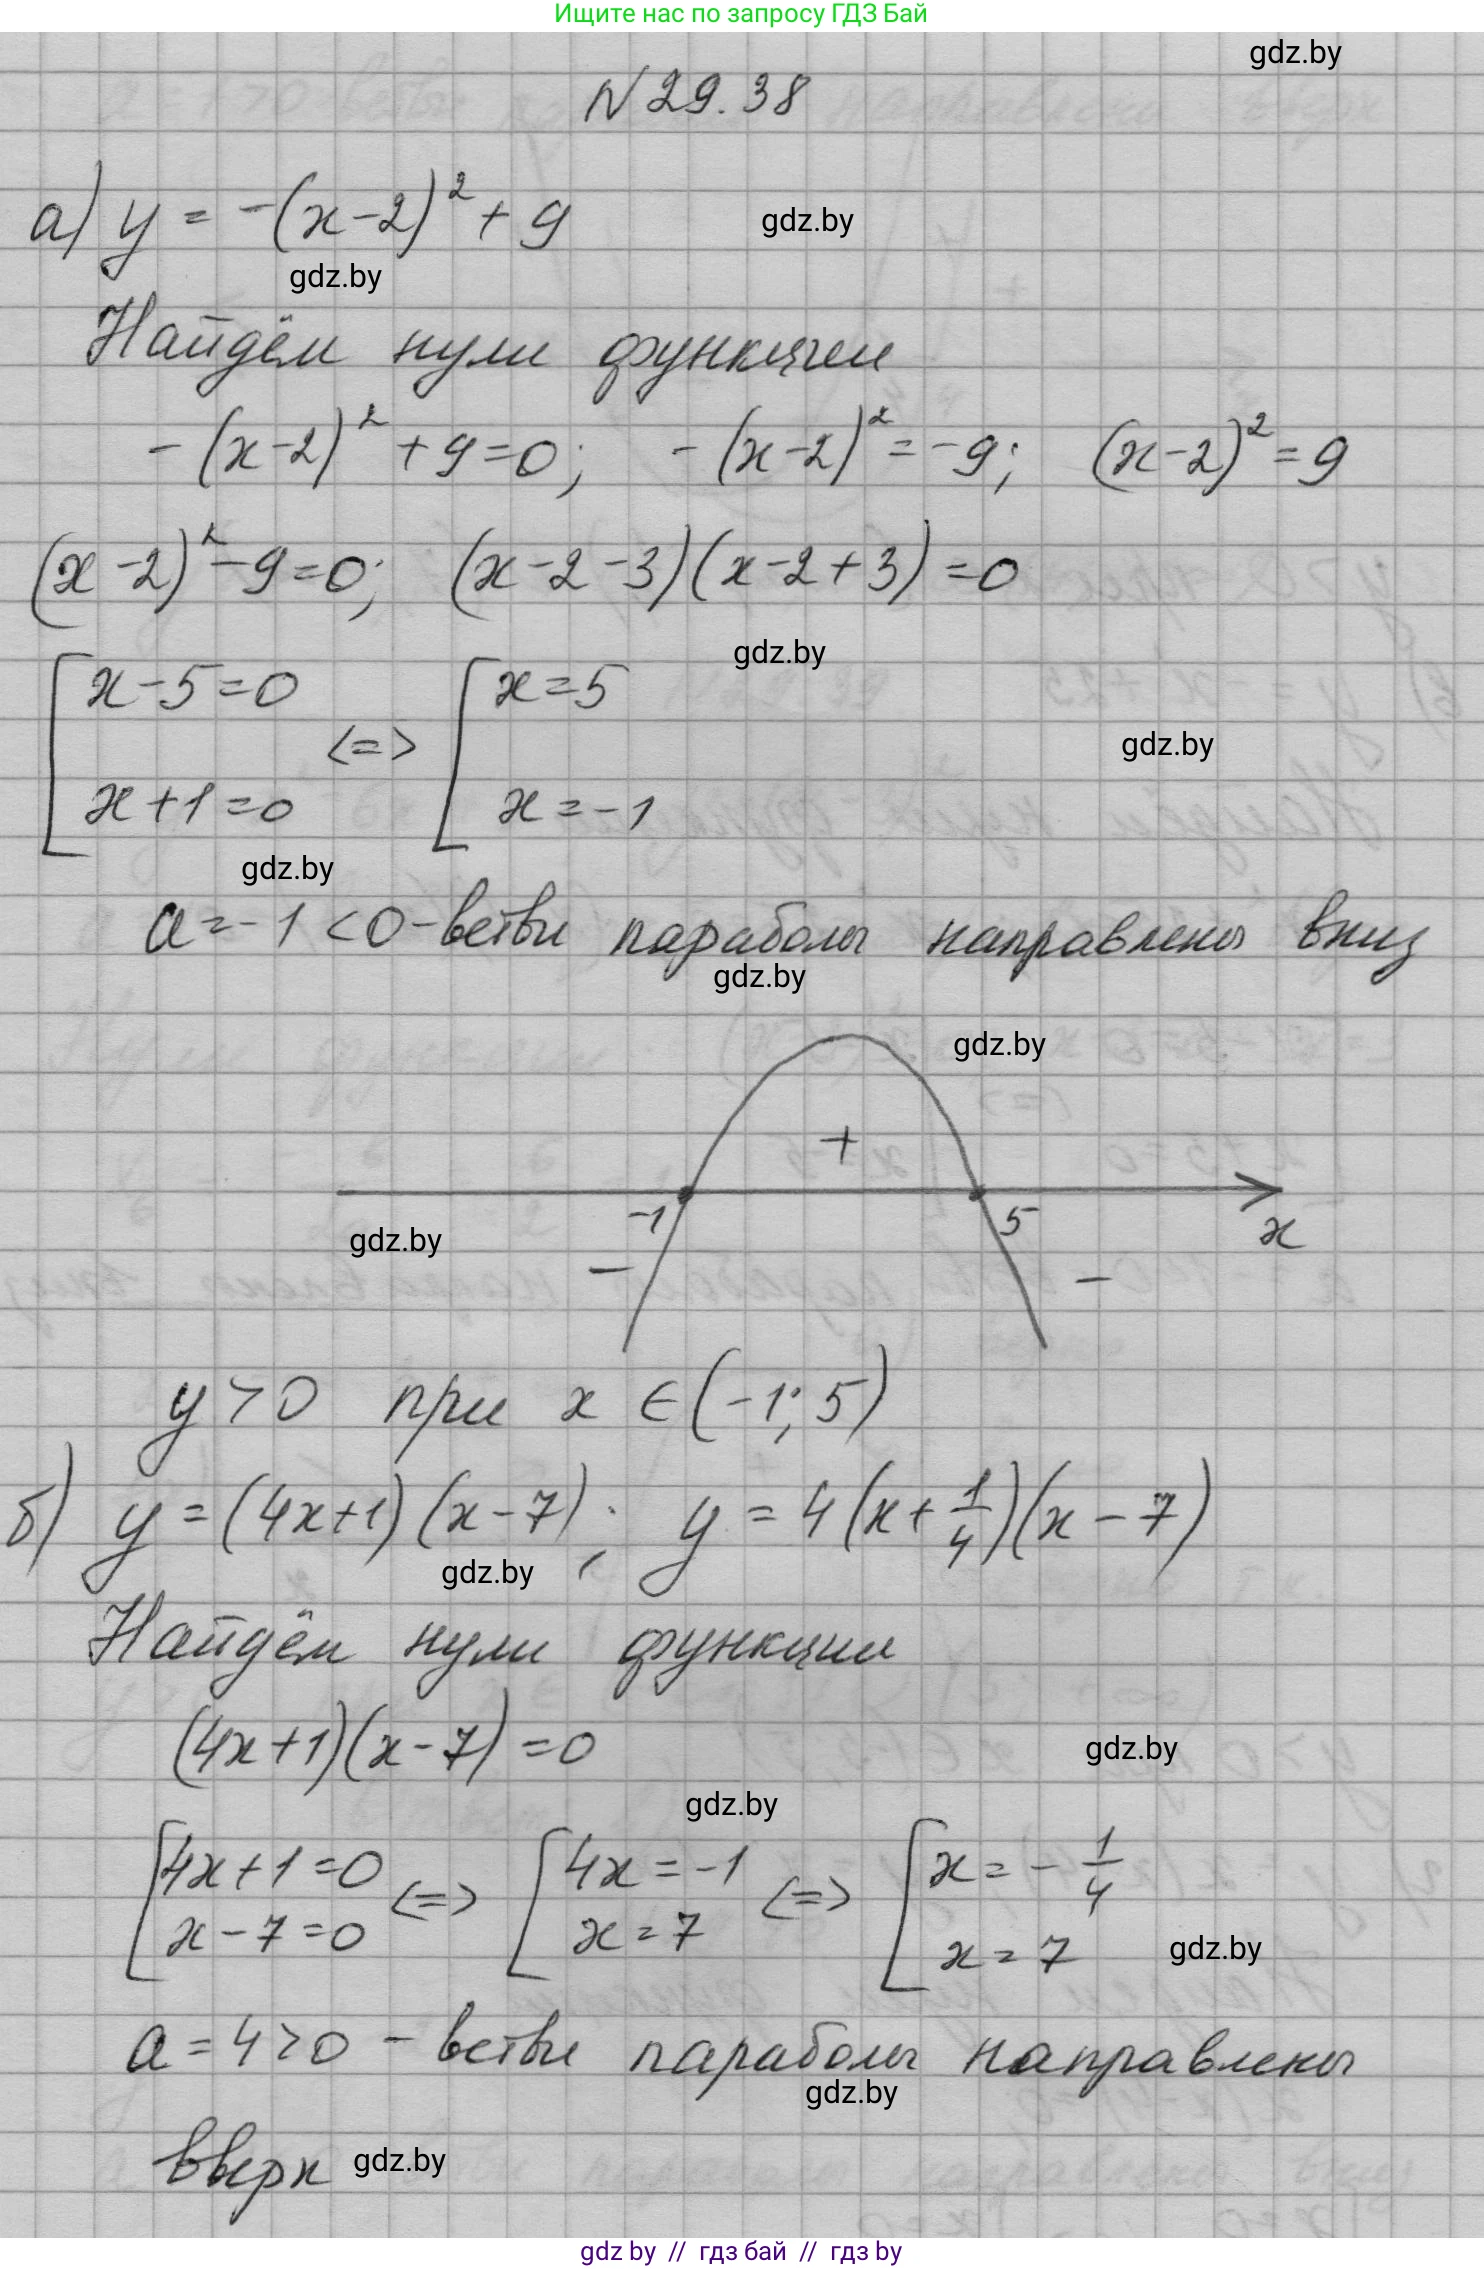 Ищите нас по запросу ГДЗ Бай
gdz.by
N 29.38
а) y = -(x-2)² + 9
gdz.by
gdz.by
Найдём нули функции
-(x-2)² + 9 = 0; -(x-2)² = -9; (x-2)² = 9
(x-2)² - 9 = 0; (x-2-3)(x-2+3) = 0
gdz.by
[x-5=0 <=> [x=5
gdz.by
x+1=0 x=-1
gdz.by
a=-1<0 - ветви параболы направлены вниз
gdz.by
gdz.by
+
-1 5 x
gdz.by
- -
y>0 при x ∈ (-1; 5)
б) y = (4x+1)(x-7); y = 4(x+1/4)(x-7)
gdz.by
Найдём нули функции
(4x+1)(x-7) = 0
gdz.by
gdz.by
[4x+1=0 <=> [4x=-1 <=> [x=-1/4
x-7=0 x=7 x=7
gdz.by
a=4>0 - ветви параболы направлены
gdz.by
вверх
gdz.by
gdz by // гдз бай // гдз by